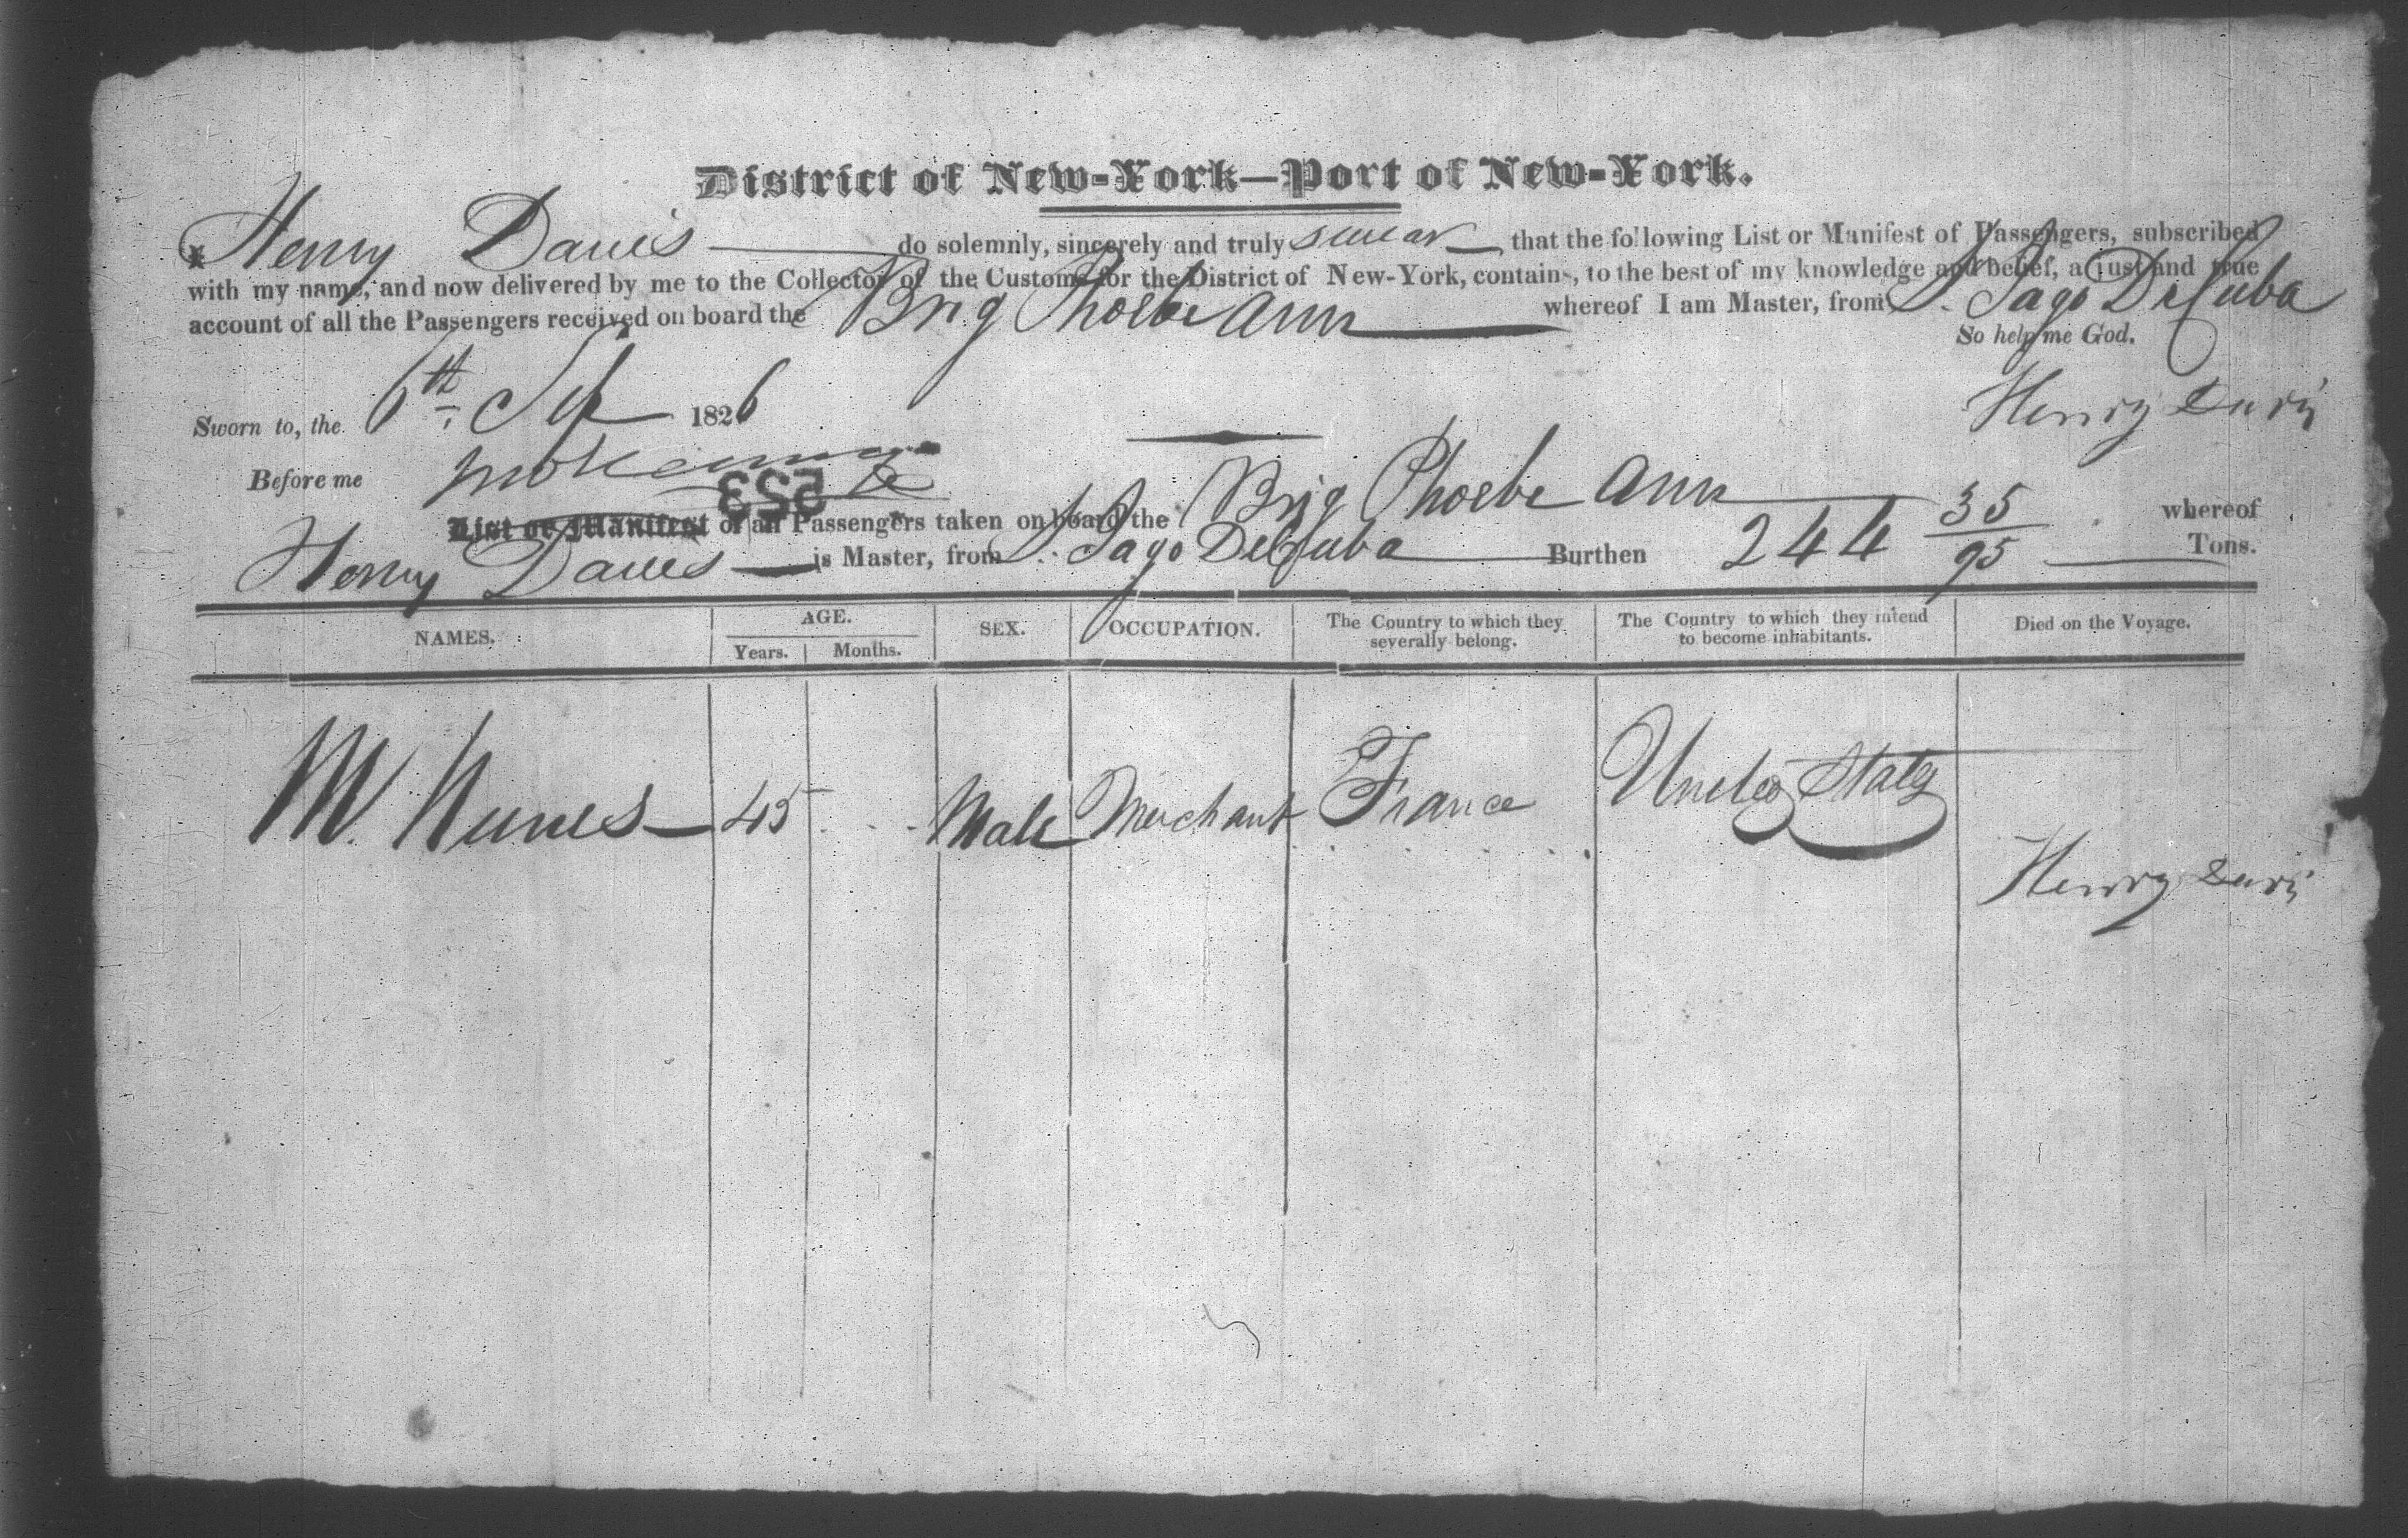 District of New-York—Port of New-York.
I Henry Davis do solemnly, sincerely and truly swear that the following List or Manifest of Passengers, subscribed
with my name, and now delivered by me to the Collector of the Customs for the District of New-York, contains, to the best of my knowledge and belief, a just and true
account of all the Passengers received on board the Brig Phoebe Ann whereof I am Master, from St. Jago De Cuba
So help me God.
Sworn to, the 6th Sep 1826
Henry Davis
Before me
553
List or Manifest of all Passengers taken on board the Brig Phoebe Ann whereof
Henry Davis is Master, from St. Jago De Cuba Burthen 244 35/95 Tons.
NAMES. AGE. SEX. OCCUPATION. The Country to which they severally belong. The Country to which they intend to become inhabitants. Died on the Voyage.
Years. Months.
M. Nunes 45 Male Merchant France United States
Henry Davis